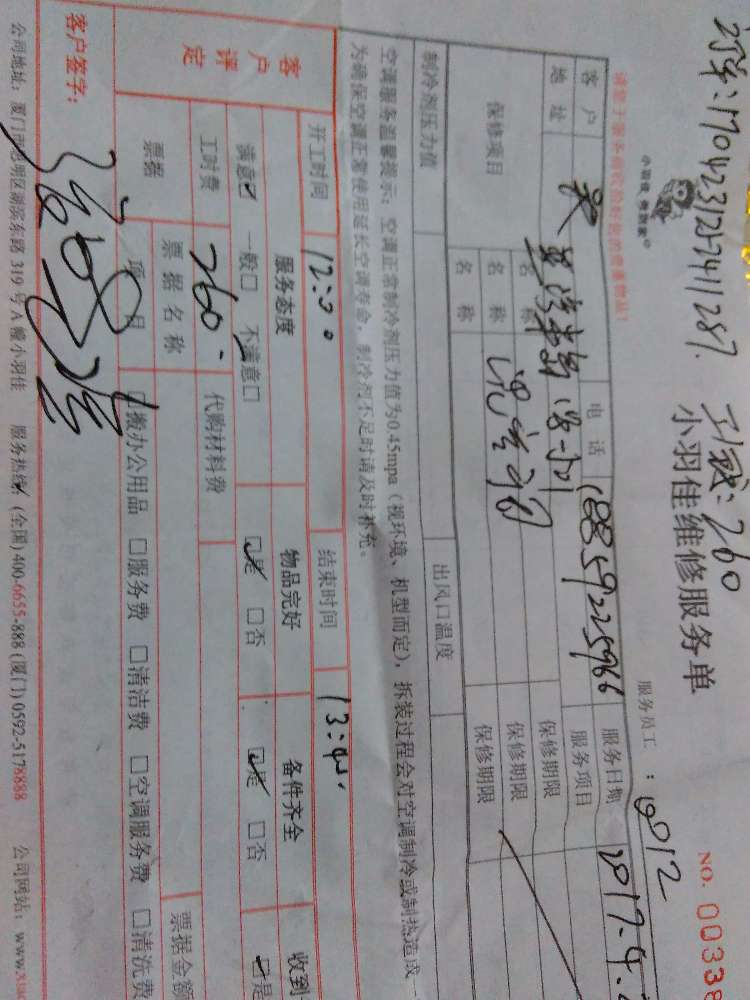 订单：170423127411287. 工钱：260
小羽佳维修服务单
NO. 00338
小羽佳 修到家
服务员工：8012
请您于服务前收捡好您的贵重物品！
客户 电话 18859225966 服务日期 2017.4.
地址 服务项目
保修项目 名称 保修期限
名称 保修期限
名称 保修期限
制冷剂压力值 出风口温度
空调服务温馨提示：空调正常制冷剂压力值为0.45mpa（视环境、机型而定），拆装过程会对空调制冷或制热造成一
为确保空调正常使用延长空调寿命，制冷剂不足时请及时补充。
开工时间 12:00 结束时间 13:45
客户评定 服务态度 物品完好 备件齐全 收到
满意☑ 一般□ 不满意□ ☑是 □否 ☑是 □否 ☑是
工时费 260. 代购材料费
票据 票据名称 票据金额
项目 □搬办公用品 □服务费 □清洁费 □空调服务费 □清洗费
客户签字：
公司地址：厦门市思明区湖滨东路 319 号 A 幢小羽佳 服务热线：(全国) 400-6655-888 (厦门) 0592-5178888 公司网站：www.xiao